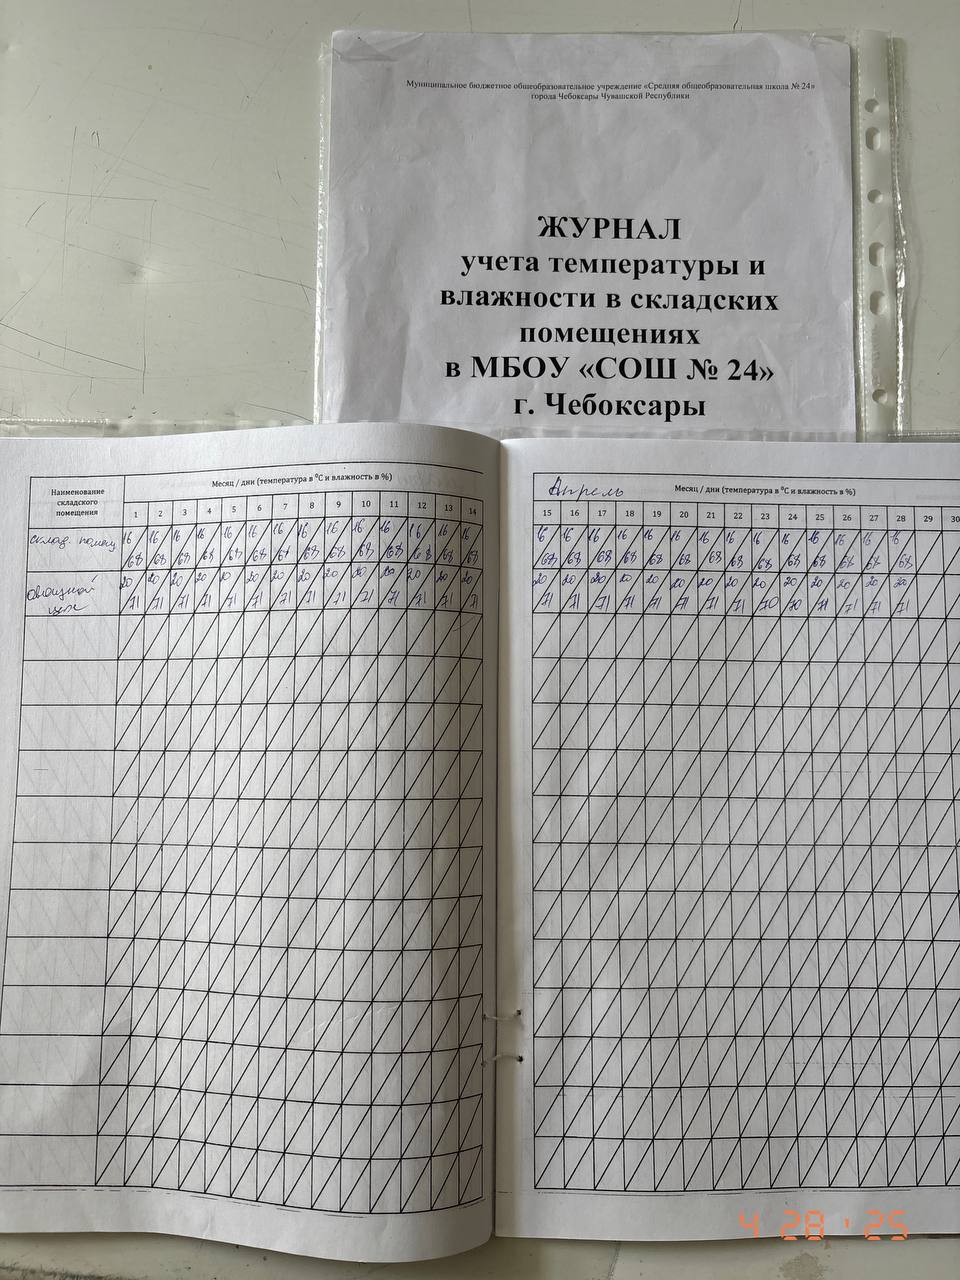 Муниципальное бюджетное общеобразовательное учреждение «Средняя общеобразовательная школа № 24»
города Чебоксары Чувашской Республики
ЖУРНАЛ
учета температуры и
влажности в складских
помещениях
в МБОУ «СОШ № 24»
г. Чебоксары
Наименование
складского
помещения
Месяц / дни (температура в ⁰С и влажность в %)
1 2 3 4 5 6 7 8 9 10 11 12 13 14
склад. помещ
16 16 16 16 16 16 16 16 16 16 16 16 16 16
68 68 68 68 68 68 67 68 68 68 68 68 68 68
Овощной
цех
20 20 20 20 20 20 20 20 20 20 20 20 20 20
71 71 71 71 71 71 71 71 71 71 71 71 71 71
Апрель
Месяц / дни (температура в ⁰С и влажность в %)
15 16 17 18 19 20 21 22 23 24 25 26 27 28 29 30
16 16 16 16 16 16 16 16 16 16 16 16 16 16
68 68 68 68 68 68 68 68 68 68 68 68 68 68
20 20 20 20 20 20 20 20 20 20 20 20 20 20
71 71 71 71 71 71 71 71 70 70 71 71 71 71
4 28 '25